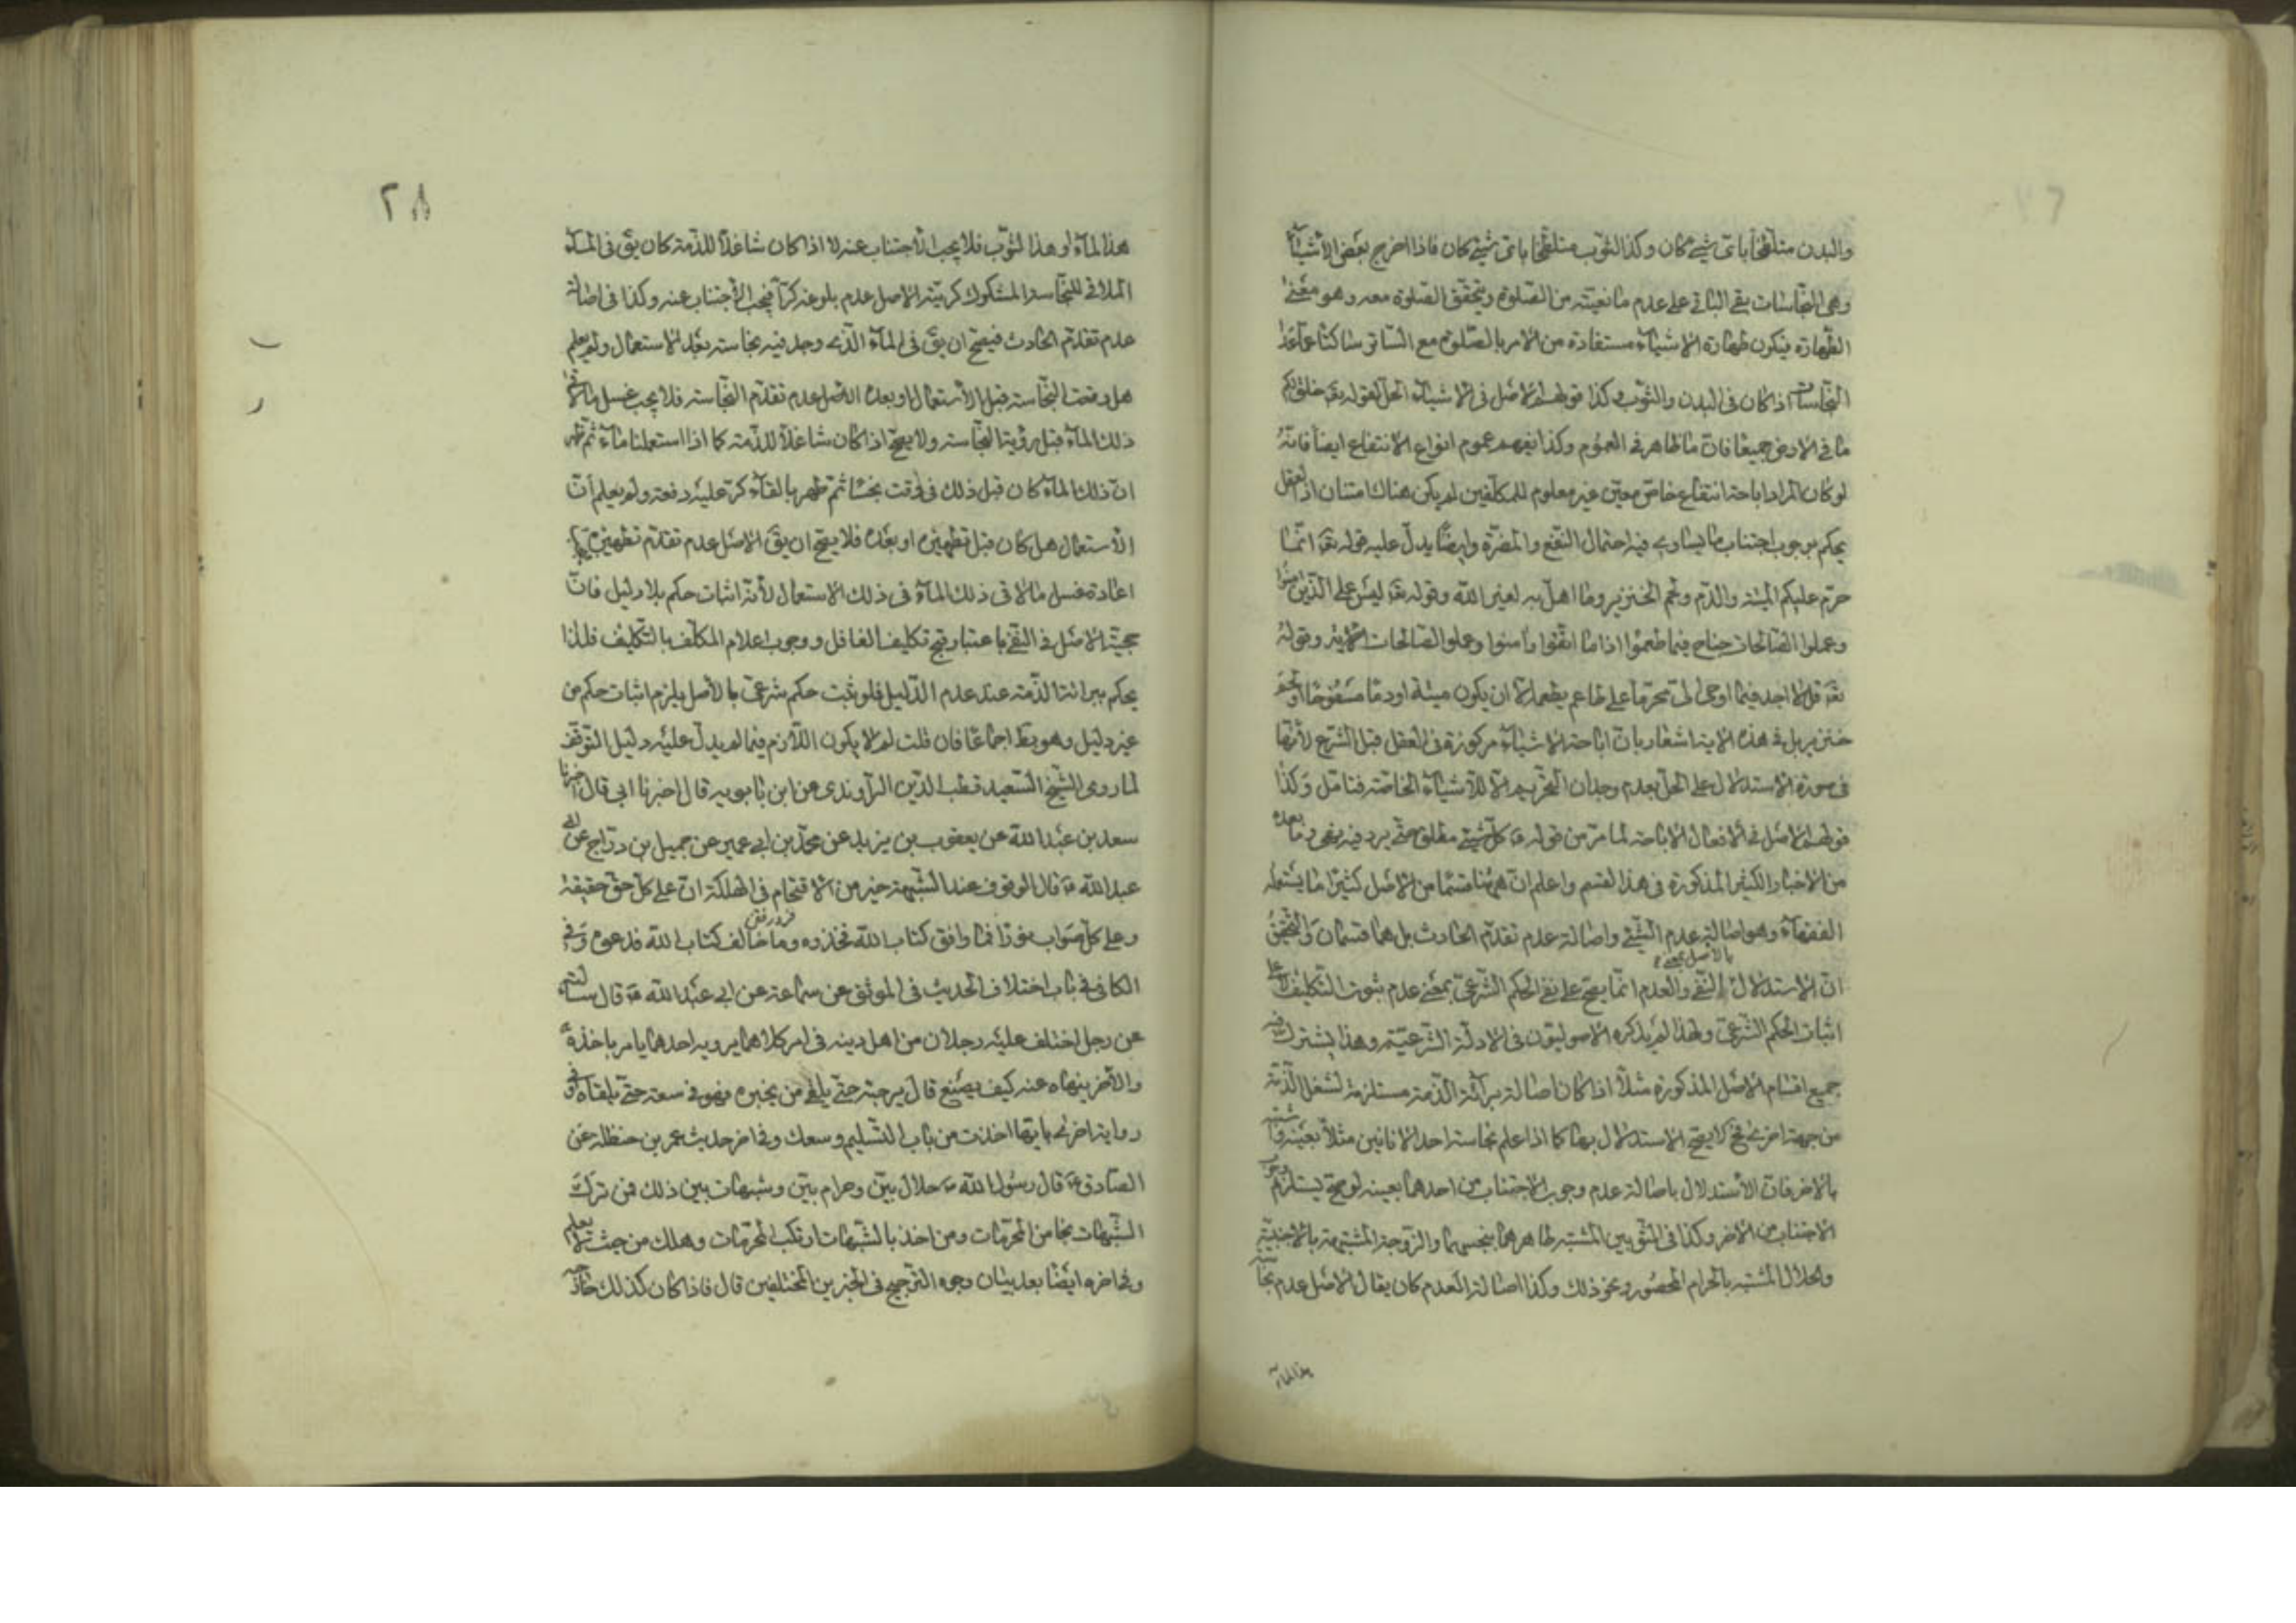 والبدن متلطخا بای شیء کان وکذا الثوب متلطخا بای شیء کان فاذا اخرج بعض الاشیآء
وهی النجاسات بقی الباقی علی عدم مانعیته من الصلوة وتحقق الصلوة معه وهو معنی
الطهارة فیکون طهارة الاشیآء مستفادة من الامر بالصلوة مع الساتر ساکتا عما عدا
النجاسات اذا کان فی البدن والثوب وکذا قولهم الاصل فی الاشیآء الحل لقوله تع خلق لکم
ما فی الارض جمیعا فان ما ظاهر فی العموم وکذا یفهم عموم انواع الانتفاع ایضا فانه
لو کان المراد اباحة انتفاع خاص معین غیر معلوم للمکلفین لم یکن هناک امتنان اذ العقل
یحکم بوجوب اجتناب ما یساوی فیه احتمال النفع والمضرة وایضا یدل علیه قوله تع انما
حرم علیکم المیتة والدم ولحم الخنزیر وما اهل به لغیر الله وقوله تع لیس علی الذین امنوا
وعملوا الصالحات جناح فیما طعموا اذا ما اتقوا وامنوا وعملوا الصالحات الایة وقوله
تع قل لا اجد فیما اوحی الی محرما علی طاعم یطعمه الا ان یکون میتة او دما مسفوحا او لحم
خنزیر بل فی هذه الایة اشعار بان اباحة الاشیآء مرکوزة فی العقل قبل الشرع لانها
فی صورة الاستدلال علی الحل بعدم وجدان التحریم الا للاشیآء الخاصة فتامل وکذا
قولهم الاصل فی الافعال الاباحة لما مر من قوله ع کل شیء مطلق حتی یرد فیه نهی وما بعده
من الاخبار الکثیر المذکورة فی هذا القسم واعلم ان ههنا قسما من الاصل کثیرا ما یستعمله
الفقهآء وهو اصالة عدم الشیء واصالة عدم تقدم الحادث بل هما قسمان والتحقیق
ان الاستدلال بالاصل بمعنی النفی والعدم انما یصح علی نفی الحکم الشرعی بمعنی عدم ثبوت التکلیف لا علی
اثبات الحکم الشرعی ولهذا لم یذکره الاصولیون فی الادلة الشرعیة وهذا یشترک فیه
جمیع اقسام الاصل المذکورة مثلا اذا کان اصالة برائة الذمة مستلزمة لشغل الذمة
من جهة اخری فح لا یصح الاستدلال بها کما اذا علم نجاسة احد الانائین مثلا بعینه واشتبه
بالاخر فان الاستدلال باصالة عدم وجوب الاجتناب من احدهما بعینه لو صح یستلزم وجوب
الاجتناب من الاخر وکذا فی الثوبین المشتبه طاهرهما بنجسهما والزوجة المشتبهة بالاجنبیة
والحلال المشتبه بالحرام المحصور ونحو ذلک وکذا اصالة العدم کان یقال الاصل عدم نجاسة
هذا المآء
٢٨
هذا المآء او هذا الثوب فلا یجب الاجتناب عنه لا اذا کان شاغلا للذمة کان یق فی المآء
الملاقی للنجاسة المشکوک کریته الاصل عدم بلوغه کرا فیجب الاجتناب عنه وکذا فی اصالة
عدم تقدم الحادث فیصح ان یق فی المآء الذی وجد فیه نجاسة بعد الاستعمال ولم یعلم
هل وقعت النجاسة قبل الاستعمال او بعده الاصل عدم تقدم النجاسة فلا یجب غسل ما لاقی
ذلک المآء قبل رؤیة النجاسة ولا یصح اذا کان شاغلا للذمة کما اذا استعملنا مآء ثم ظهر
ان ذلک المآء کان قبل ذلک فی وقت نجسا ثم طهر بالقآء کر علیه دفعة ولم یعلم ان
الاستعمال هل کان قبل تطهیره او بعده فلا یصح ان یق الاصل عدم تقدم تطهیره فیجب
اعادة غسل ما لاقی ذلک المآء فی ذلک الاستعمال لانه اثبات حکم بلا دلیل فان
حجیة الاصل فی النفی باعتبار قبح تکلیف الغافل ووجوب اعلام المکلف بالتکلیف فلذا
یحکم ببرائة الذمة عند عدم الدلیل فلو ثبت حکم شرعی بالاصل یلزم اثبات حکم من
غیر دلیل وهو بط اجماعا فان قلت لم لا یکون اللازم فیما لم یدل علیه دلیل التوقف
لما روی الشیخ السعید قطب الدین الراوندی عن ابن بابویه قال اخبرنا ابی قال اخبرنا
سعد بن عبد الله عن یعقوب بن یزید عن محمد بن ابی عمیر عن جمیل بن دراج عن ابی
عبد الله ع قال الوقوف عند الشبهة خیر من الاقتحام فی الهلکة ان علی کل حق حقیقة
وعلی کل صواب نورا فما وافق کتاب الله فخذوه وما خالف کتاب الله فدعوه وفی
الکافی فی باب اختلاف الحدیث فی الموثق عن سماعة عن ابی عبد الله ع قال سالته
عن رجل اختلف علیه رجلان من اهل دینه فی امر کلاهما یرویه احدهما یامر باخذه
والاخر ینهاه عنه کیف یصنع قال یرجئه حتی یلقی من یخبره فهو فی سعة حتی یلقاه وفی
روایة اخری بایها اخذت من باب التسلیم وسعک وفی اخر حدیث عمر بن حنظلة عن
الصادق ع قال رسول الله ص حلال بین وحرام بین وشبهات بین ذلک فمن ترک
الشبهات نجا من المحرمات ومن اخذ بالشبهات ارتکب المحرمات وهلک من حیث لا یعلم
وفی اخره ایضا بعد بیان وجوه الترجیح فی الخبرین المختلفین قال فاذا کان کذلک فارجه